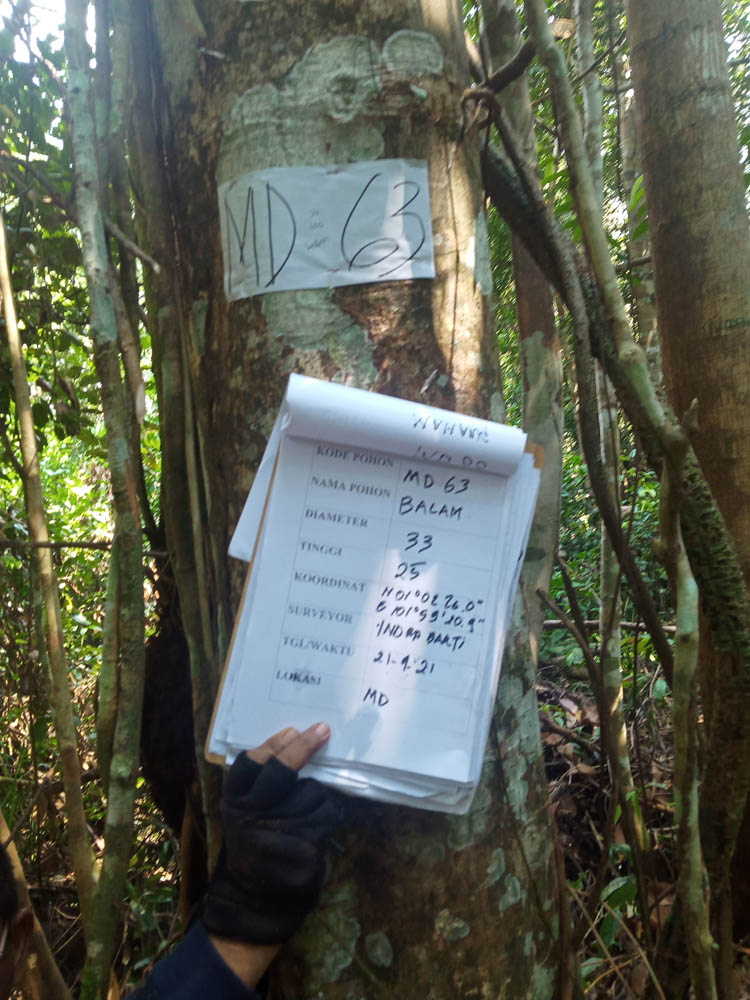 MD : 63
KODE POHON MD 63
NAMA POHON BALAM
DIAMETER 33
TINGGI 25
KOORDINAT N 01°02'26.0"
E 101°59'20.9"
SURVEYOR
TGL/WAKTU 21-9-21
LOKASI MD